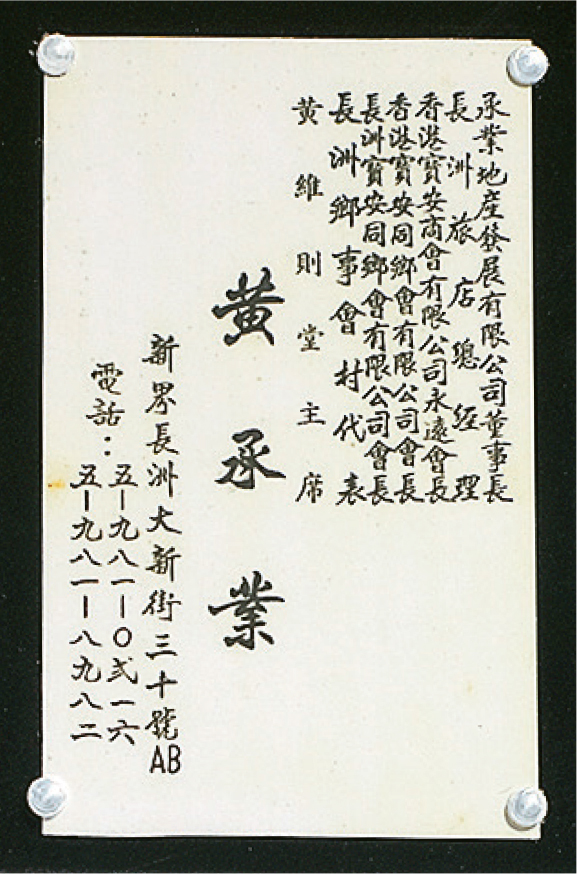 承業地產發展有限公司董事長
長洲旅店總經理
香港寶安商會有限公司永遠會長
香港寶安同鄉會有限公司會長
長洲寶安同鄉會有限公司會長
長洲鄉事會村代表
黃維則堂主席
黃承業
新界長洲大新街三十號AB
電話：五－九八一－〇弍一六
五－九八一－八九八二